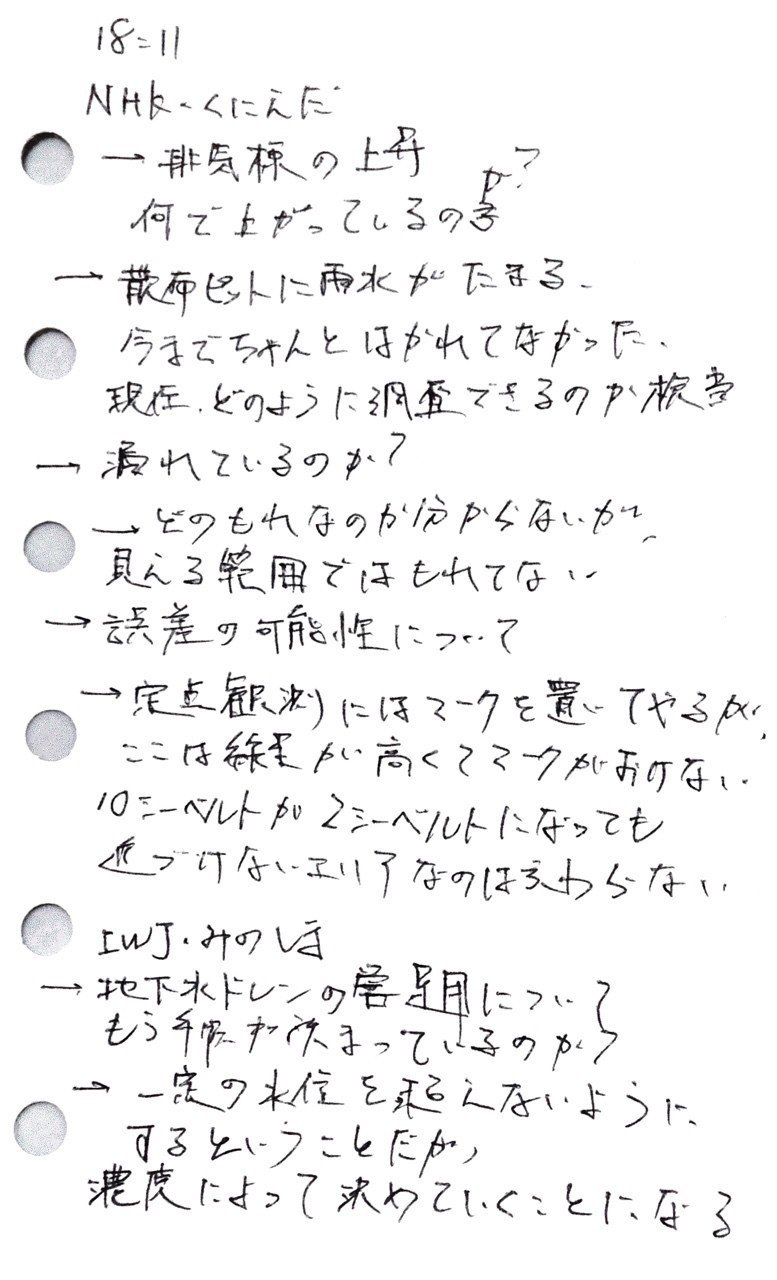 18:11
NHK・くにえだ
→ 排気棟の上昇
何で上がっているのか?
→ 散布ピットに雨水がたまる、
今までちゃんとはかれてなかった、
現在、どのように調査できるのか検
→ 漏れているのか?
→ どのもれなのか分からないが、
見える範囲ではもれてない
→ 誤差の可能性について
→ 定点観測にはマークを置いてやるが、
ここは線量が高くてマークがおけない
10シーベルトが2シーベルトになっても
近づけないエリアなのは変わらない
IWJ・みのしま
→ 地下水ドレンの
について
もう手順が決まっているのか?
→ 一定の水位を超えないように、
するということだが、
濃度によって決めていくことになる